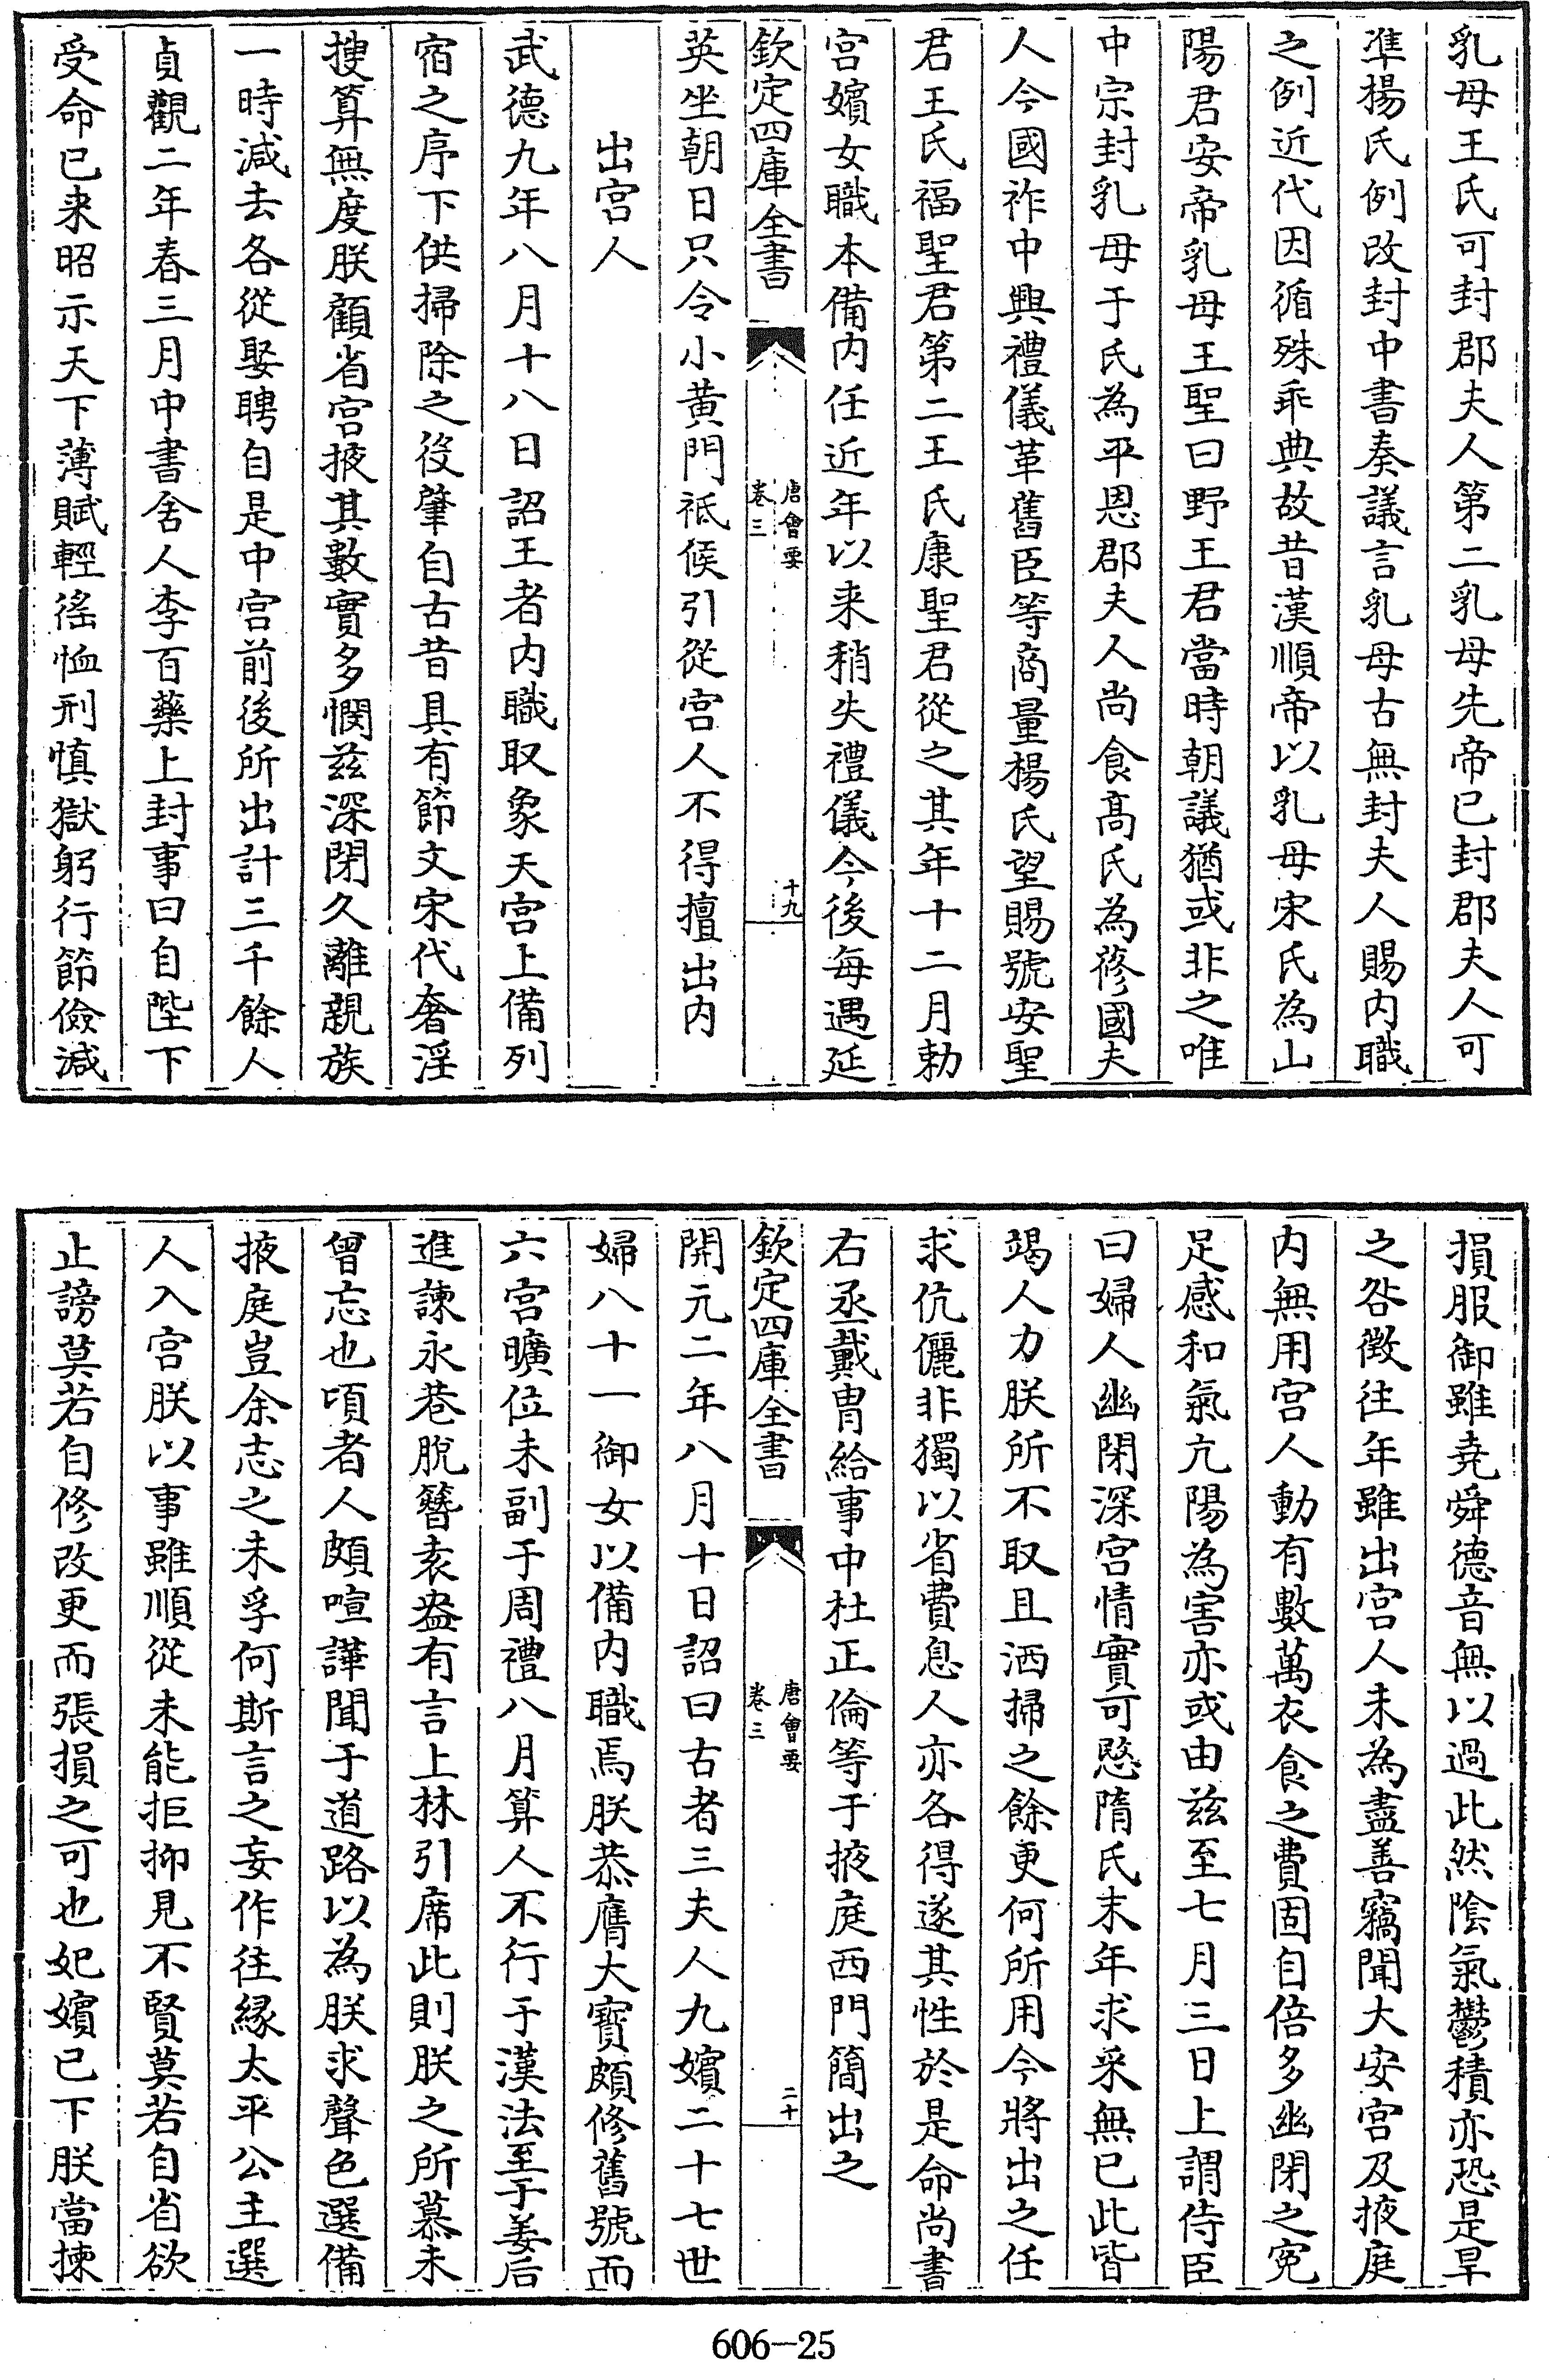 乳母王氏可封郡夫人第二乳母先帝已封郡夫人可
準楊氏例改封中書奏議言乳母古無封夫人賜内職
之例近代因循殊乖典故昔漢順帝以乳母宋氏為山
陽君安帝乳母王聖曰野王君當時朝議猶或非之唯
中宗封乳母于氏為平恩郡夫人尚食髙氏為蓚國夫
人今國祚中興禮儀革舊臣等商量楊氏望賜號安聖
君王氏福聖君第二王氏康聖君從之其年十二月勅
宫嬪女職本備内任近年以来稍失禮儀今後每遇延
欽定四庫全書
唐會要
卷三
十九
英坐朝日只令小黄門祗候引從宫人不得擅出内
出宫人
武德九年八月十八日詔王者内職取象天宫上備列
宿之序下供掃除之役肇自古昔具有節文宋代奢淫
搜算無度朕顧省宫掖其數實多憫兹深閉久離親族
一時減去各從娶聘自是中宫前後所出計三千餘人
貞觀二年春三月中書舍人李百藥上封事曰自陛下
受命已来昭示天下薄賦輕徭恤刑慎獄躬行節儉減
損服御雖堯舜德音無以過此然陰氣鬱積亦恐是旱
之咎徴往年雖出宫人未為盡善竊聞大安宫及掖庭
内無用宫人動有數萬衣食之費固自倍多幽閉之寃
足感和氣亢陽為害亦或由兹至七月三日上謂侍臣
曰婦人幽閉深宫情實可愍隋氏末年求采無已此皆
竭人力朕所不取且洒掃之餘更何所用今將出之任
求伉儷非獨以省費息人亦各得遂其性於是命尚書
右丞戴胄給事中杜正倫等于掖庭西門簡出之
欽定四庫全書
唐會要
卷三
二十
開元二年八月十日詔曰古者三夫人九嬪二十七世
婦八十一御女以備内職焉朕恭膺大寳頗修舊號而
六宫曠位未副于周禮八月算人不行于漢法至于姜后
進諫永巷脫簪袁盎有言上林引席此則朕之所慕未
曾忘也頃者人頗喧譁聞于道路以為朕求聲色選備
掖庭豈余志之未孚何斯言之妄作往緣太平公主選
人入宫朕以事雖順從未能拒抑見不賢莫若自省欲
止謗莫若自修改更而張損之可也妃嬪已下朕當揀
606-25